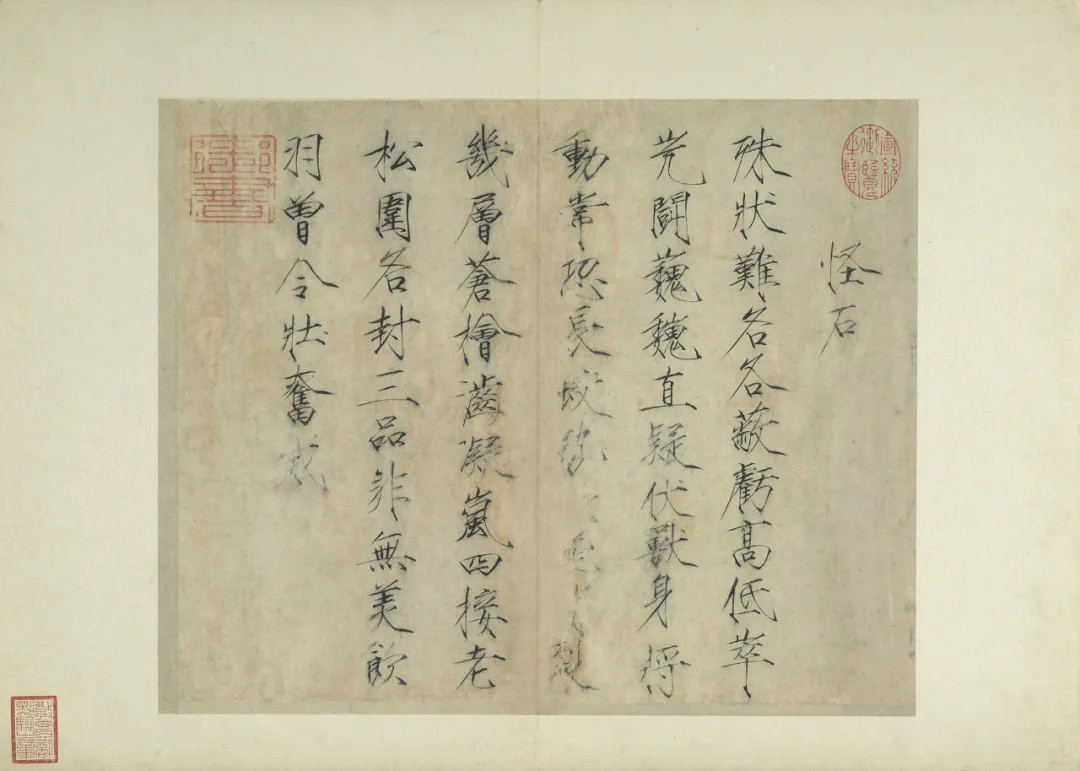 怪石
殊狀難名各蔽虧高低萃
岏鬪巍巍直疑伏獸身將
動常恐長蛟勢
幾層蒼檜濇凝嵐四接老
松圍各封三品非無美飲
羽曾令壯奮威
御書